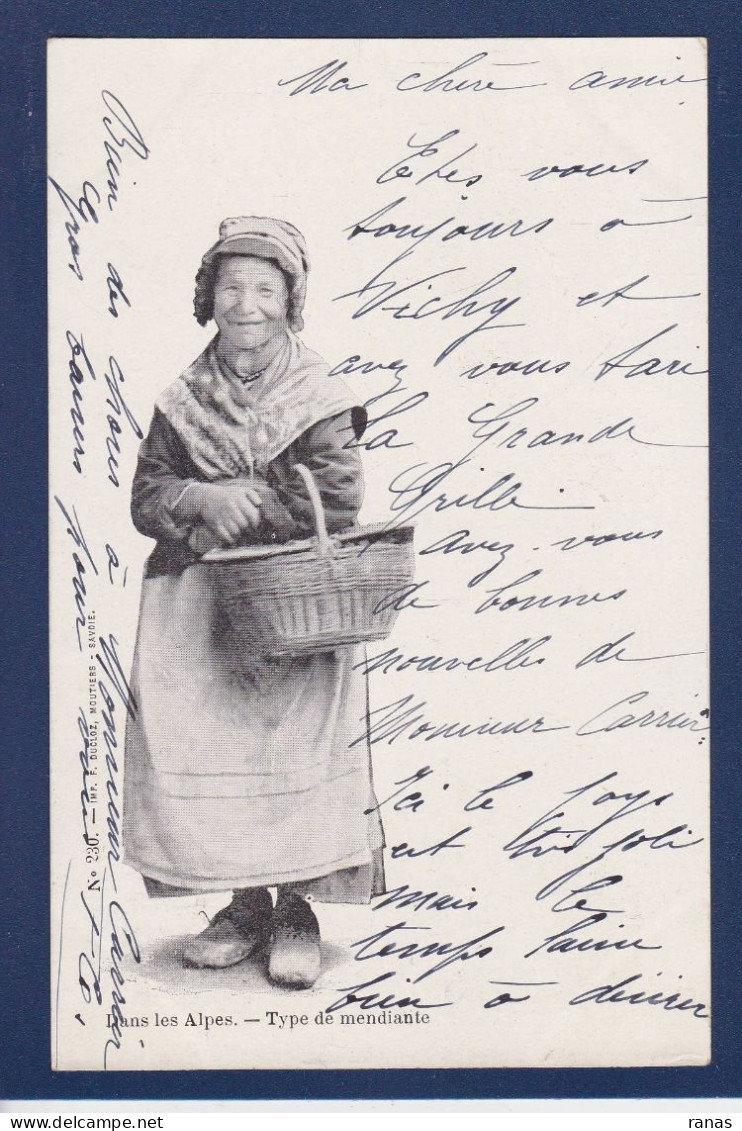 Ma chère amie
Etes vous
toujours à
Vichy et
avez vous tari
La Grande
Grille
avez-vous
de bonnes
nouvelles de
Monsieur Carrier
Ici le pays
est très joli
mais le
temps laisse
bien à désirer
Bien des choses à Monsieur Carrier
Gros baisers pour
N° 230. — IMP. F. DUCLOZ, MOUTIERS - SAVOIE.
Dans les Alpes. — Type de mendiante
ranas